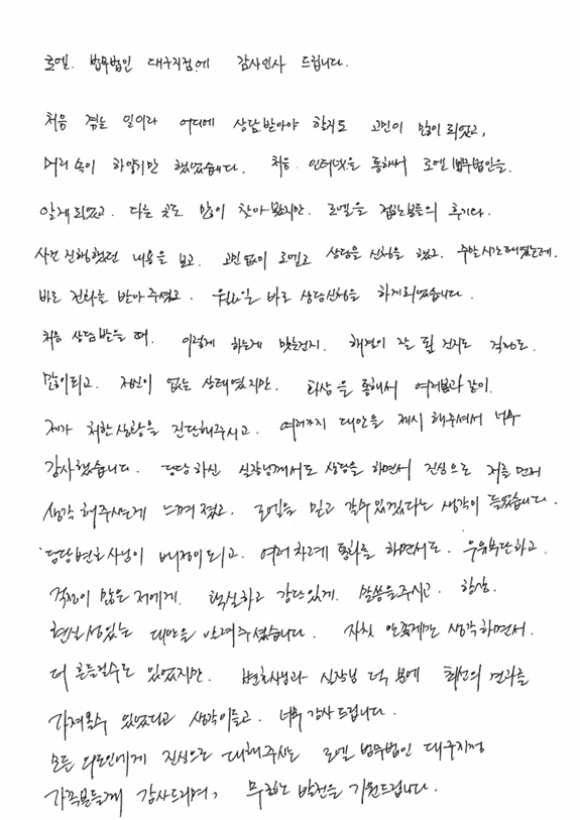 로엘. 법무법인 대구지점에 감사인사 드립니다.
처음 겪는 일이라 어디에 상담받아야 할지도 고민이 많이 되었고,
머리 속이 하얗기만 했었습니다. 처음. 인터넷을 통해서 로엘 법무법인을.
알게되었고. 다른 곳도 많이 찾아봤지만. 로엘을 접한분들의 후기나.
사건 진행했던 내용을 보고. 고민없이 로엘로 상담을 신청을 했고. 주말시간대였는데.
바로 전화를 받아주셨고. 월요일 바로 상담신청을 하게되었습니다.
처음 상담받을 때. 이렇게 하는게 맞는건지. 해결이 잘 될 건지도 걱정도.
많이되고. 자신이 없는 상태였지만. 화상을 통해서 여러분과 같이.
제가 처한상황을 진단해주시고. 여러가지 대안을 제시 해주셔서 너무
감사했습니다. 담당하신 실장님께서도 상담을 하면서 진심으로 저를 먼저
생각해주시는게 느껴졌고. 로엘을 믿고 갈수있겠다는 생각이 들었습니다.
담당변호사님이 배정이되고. 여러차례 통화를 하면서도. 우유부단하고.
걱정이 많은 저에게. 확실하고 강단있게. 말씀을주시고. 항상.
현실성있는 대안을 내려주셨습니다. 자칫 안좋게만 생각하면서.
더 흔들릴수도 있었지만. 변호사님과 실장님 덕분에 최선의 결과를
가져올수 있었다고 생각이들고. 너무 감사드립니다.
모든 의뢰인에게 진심으로 대해주시는 로엘 법무법인 대구지점
가족분들께 감사드리며, 무한한 발전을 기원드립니다.